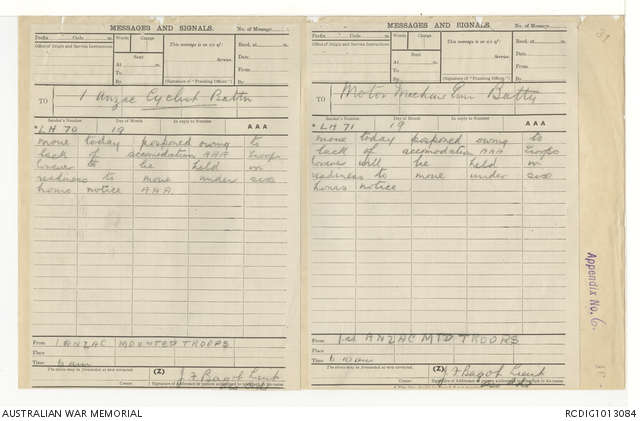 MESSAGES AND SIGNALS.
No. of Message
Prefix Code m.
Office of Origin and Service Instructions
Words Charge
This message is on a/c of:
Recd. at m.
Sent
Service.
Date
At m.
From
To
By
(Signature of "Franking Officer.")
By
TO 1 Anzac Cyclist Battn
Sender's Number Day of Month In reply to Number
* LH 70 19 AAA
move today postponed owing to
lack of accomodation AAA troops
to be held in
readiness to move under six
hours notice AAA
From 1 ANZAC MOUNTED TROOPS
Place
Time 6 am
The above may be forwarded as now corrected.
(Z)
J F Bagot Lieut
Censor.
MESSAGES AND SIGNALS.
No. of Message
Prefix Code m.
Office of Origin and Service Instructions
Words Charge
This message is on a/c of:
Recd. at m.
Sent
Service.
Date
At m.
From
To
By
(Signature of "Franking Officer.")
By
TO Motor Machine Gun Batty
Sender's Number Day of Month In reply to Number
* LH 71 19 AAA
move today postponed owing to
lack of accomodation AAA troops
will be held in
readiness to move under six
hours notice
From 1st ANZAC MTD TROOPS
Place
Time 6.10 am
The above may be forwarded as now corrected.
(Z)
J F Bagot Lieut
Censor.
Appendix No. 6.
AUSTRALIAN WAR MEMORIAL
RCDIG1013084